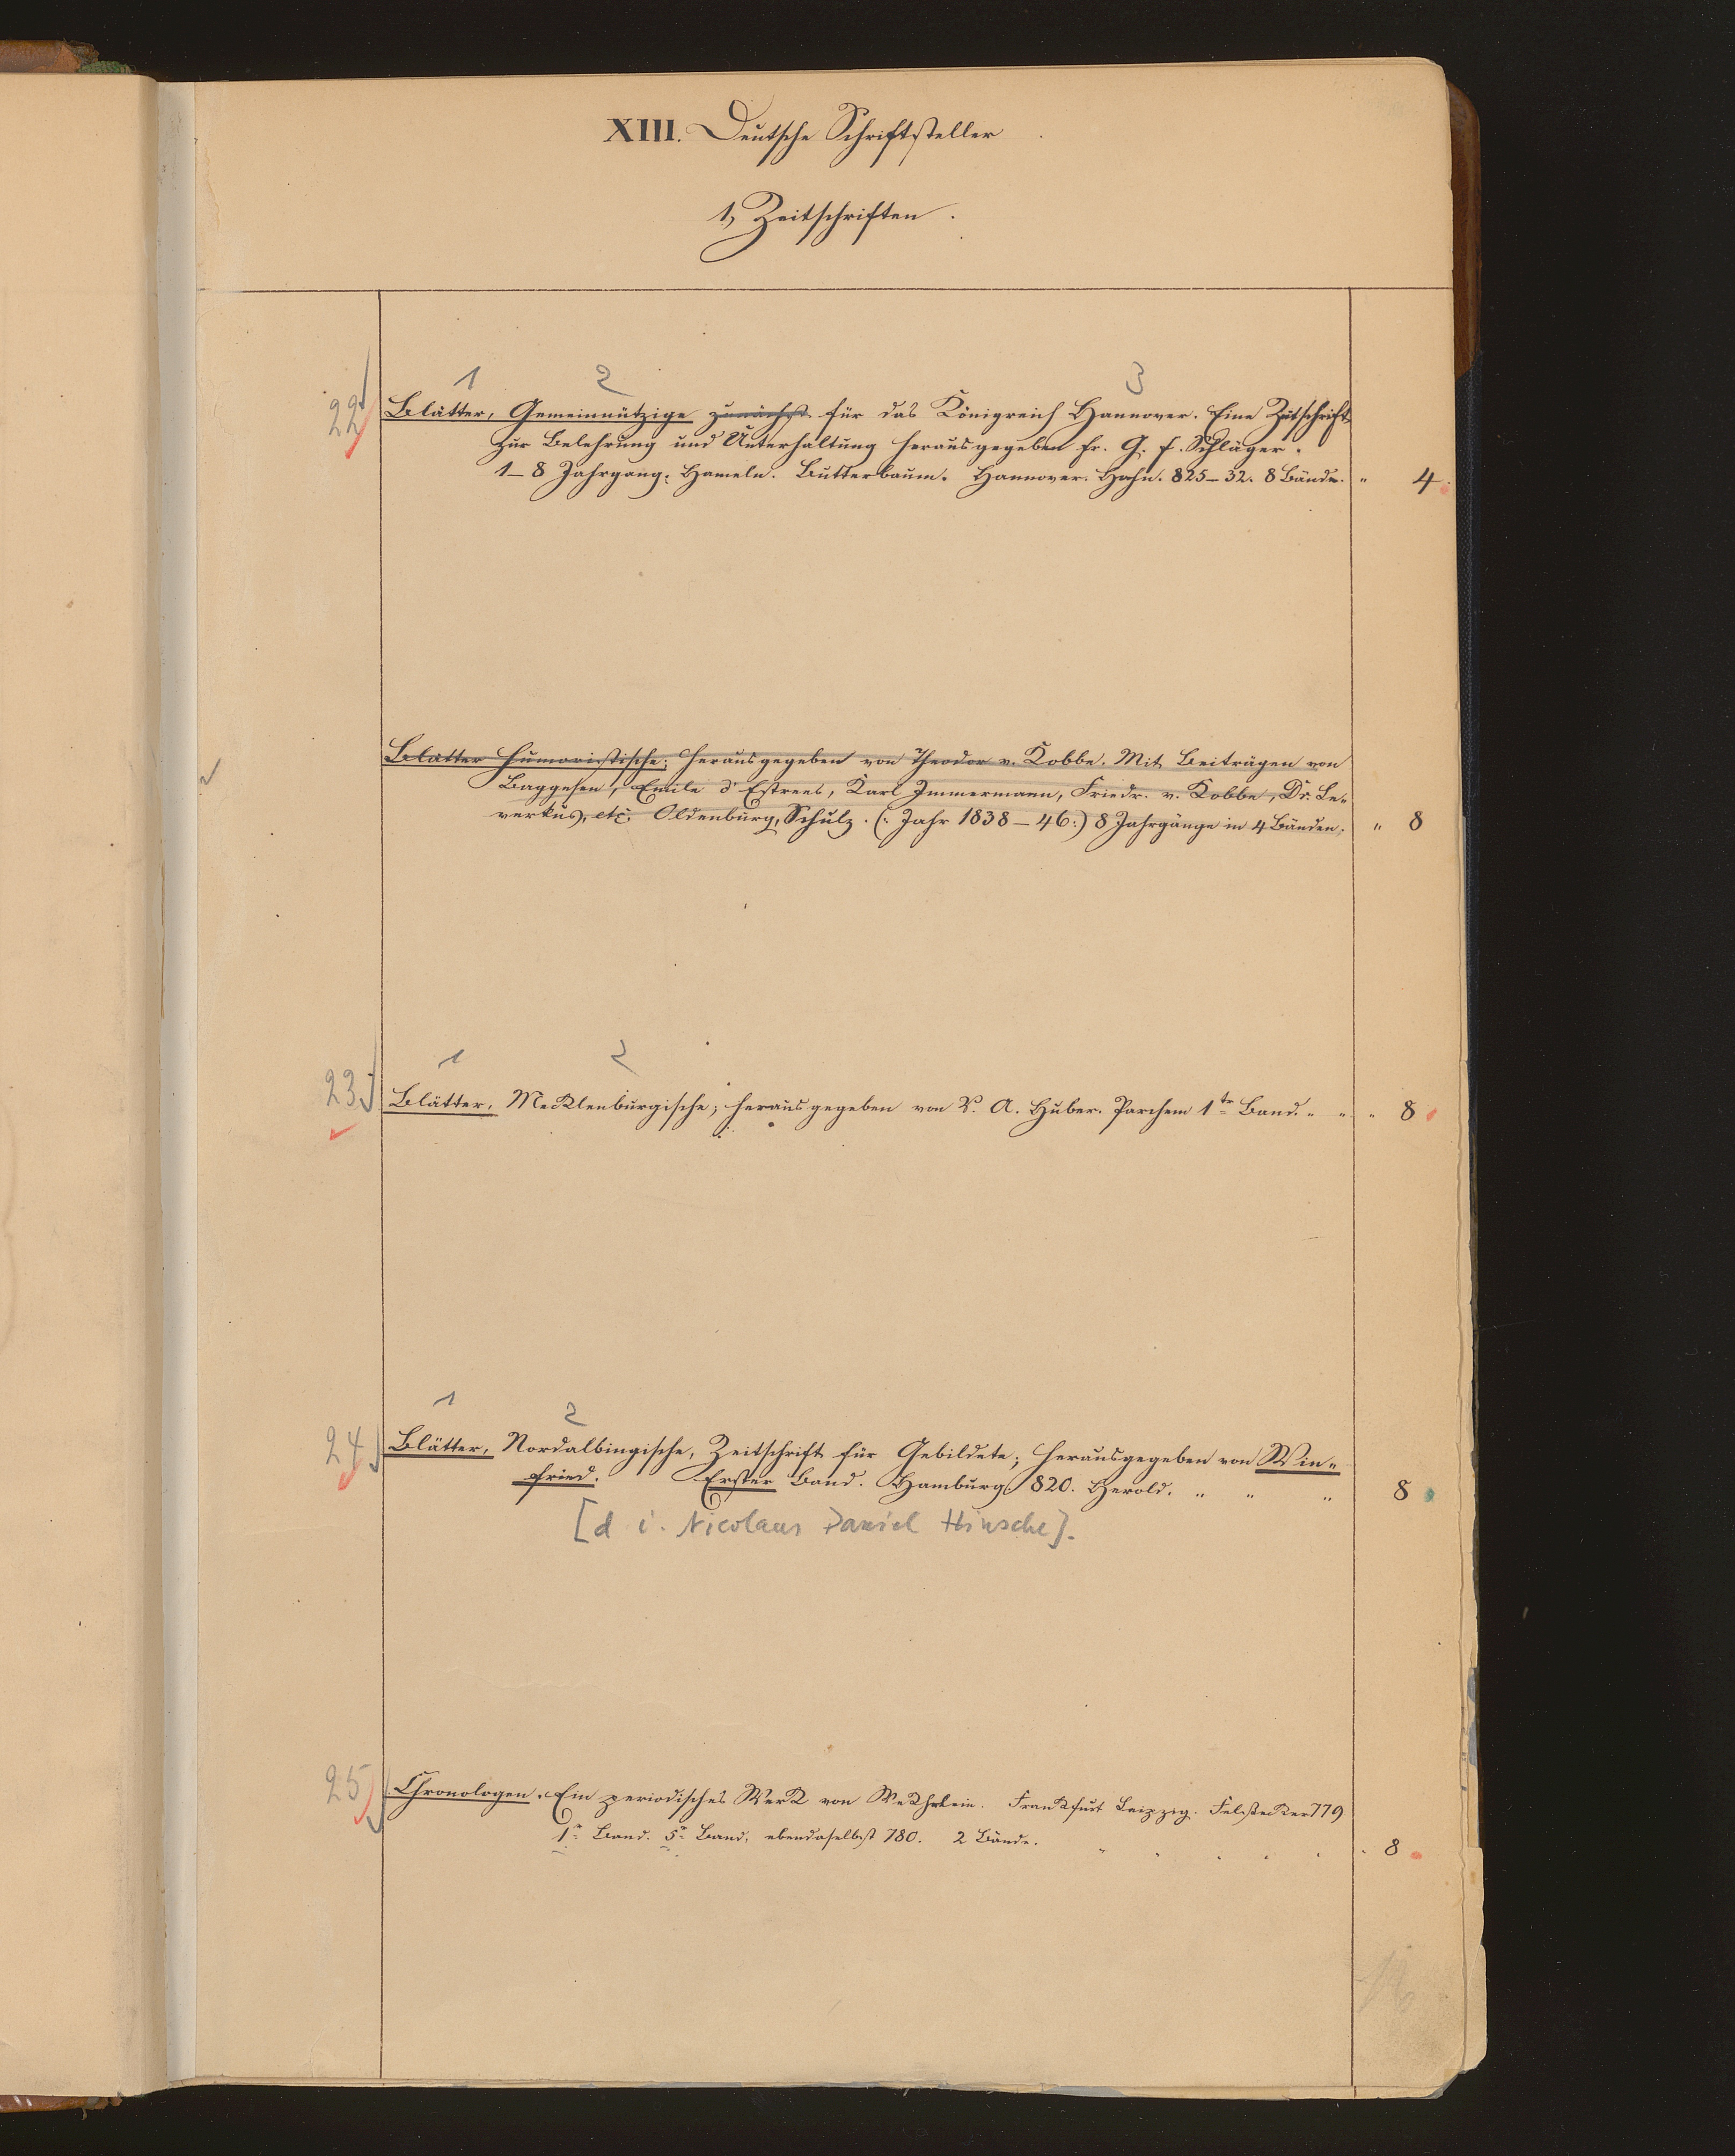 XIII. Deutsche Schriftsteller
1, Zeitschriften.
1 2 3
22 Blätter, Gemeinnützige zunächst für das Königreich Hannover. Eine Zeitschrift
zur Belehrung und Unterhaltung herausgegeben fr. G. f. Schläger.
1–8 Jahrgang. Hameln. Butterbaum. Hannover. Hahn. 825–32. 8 Bände. " 4.
Blätter Humoristische; Herausgegeben von Theodor v. Kobbe. Mit Beiträgen von
Baggesen, Emile d'Estrees, Karl Immermann, Friedr. v. Kobbe, Dr. Le-
verkus, etc. Oldenburg, Schulz. (: Jahr 1838–46:) 8 Jahrgänge in 4 Bänden. " 8
1 2
23 Blätter, Mecklenburgische; herausgegeben von V. A. Huber. Parchem 1tr Band. " " " 8
1 2
24 Blätter, Nordalbingische, Zeitschrift für Gebildete; herausgegeben von Win-
fried. Erster Band. Hamburg 820. Herold. " " " 8
[d i. Nicolaus Daniel Hinsche].
25 Chronologen. Ein periodisches Werk von Wekhrlein. Frankfurt Leipzig. Felsecker 779
1r Band. 5r Band, ebendaselbst 780. 2 Bände. " 8